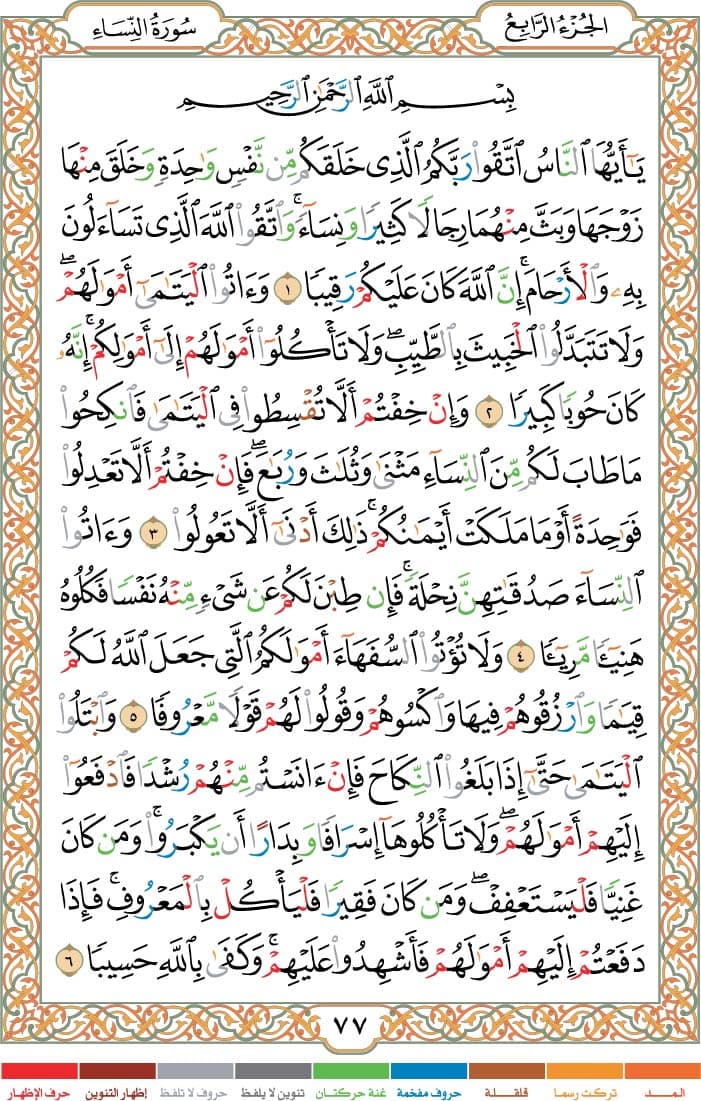 الجُزْءُ الرَّابِعُ
سُورَةُ النِّسَاءِ
بِسْمِ ٱللَّهِ ٱلرَّحْمَٰنِ ٱلرَّحِيمِ
يَٰٓأَيُّهَا ٱلنَّاسُ ٱتَّقُوا۟ رَبَّكُمُ ٱلَّذِى خَلَقَكُم مِّن نَّفْسٍ وَٰحِدَةٍ وَخَلَقَ مِنْهَا
زَوْجَهَا وَبَثَّ مِنْهُمَا رِجَالًا كَثِيرًا وَنِسَآءً ۚ وَٱتَّقُوا۟ ٱللَّهَ ٱلَّذِى تَسَآءَلُونَ
بِهِۦ وَٱلْأَرْحَامَ ۚ إِنَّ ٱللَّهَ كَانَ عَلَيْكُمْ رَقِيبًا ١ وَءَاتُوا۟ ٱلْيَتَٰمَىٰٓ أَمْوَٰلَهُمْ ۖ
وَلَا تَتَبَدَّلُوا۟ ٱلْخَبِيثَ بِٱلطَّيِّبِ ۖ وَلَا تَأْكُلُوٓا۟ أَمْوَٰلَهُمْ إِلَىٰٓ أَمْوَٰلِكُمْ ۚ إِنَّهُۥ
كَانَ حُوبًا كَبِيرًا ٢ وَإِنْ خِفْتُمْ أَلَّا تُقْسِطُوا۟ فِى ٱلْيَتَٰمَىٰ فَٱنكِحُوا۟
مَا طَابَ لَكُم مِّنَ ٱلنِّسَآءِ مَثْنَىٰ وَثُلَٰثَ وَرُبَٰعَ ۖ فَإِنْ خِفْتُمْ أَلَّا تَعْدِلُوا۟
فَوَٰحِدَةً أَوْ مَا مَلَكَتْ أَيْمَٰنُكُمْ ۚ ذَٰلِكَ أَدْنَىٰٓ أَلَّا تَعُولُوا۟ ٣ وَءَاتُوا۟
ٱلنِّسَآءَ صَدُقَٰتِهِنَّ نِحْلَةً ۚ فَإِن طِبْنَ لَكُمْ عَن شَىْءٍ مِّنْهُ نَفْسًا فَكُلُوهُ
هَنِيٓـًٔا مَّرِيٓـًٔا ٤ وَلَا تُؤْتُوا۟ ٱلسُّفَهَآءَ أَمْوَٰلَكُمُ ٱلَّتِى جَعَلَ ٱللَّهُ لَكُمْ
قِيَٰمًا وَٱرْزُقُوهُمْ فِيهَا وَٱكْسُوهُمْ وَقُولُوا۟ لَهُمْ قَوْلًا مَّعْرُوفًا ٥ وَٱبْتَلُوا۟
ٱلْيَتَٰمَىٰ حَتَّىٰٓ إِذَا بَلَغُوا۟ ٱلنِّكَاحَ فَإِنْ ءَانَسْتُم مِّنْهُمْ رُشْدًا فَٱدْفَعُوٓا۟
إِلَيْهِمْ أَمْوَٰلَهُمْ ۖ وَلَا تَأْكُلُوهَآ إِسْرَافًا وَبِدَارًا أَن يَكْبَرُوا۟ ۚ وَمَن كَانَ
غَنِيًّا فَلْيَسْتَعْفِفْ ۖ وَمَن كَانَ فَقِيرًا فَلْيَأْكُلْ بِٱلْمَعْرُوفِ ۚ فَإِذَا
دَفَعْتُمْ إِلَيْهِمْ أَمْوَٰلَهُمْ فَأَشْهِدُوا۟ عَلَيْهِمْ ۚ وَكَفَىٰ بِٱللَّهِ حَسِيبًا ٦
٧٧
المـــد تركت رسما قلقـلة حروف مفخمة غنة حركتان تنوين لا يلفظ حروف لا تلفظ إظهار التنوين حرف الإظهار